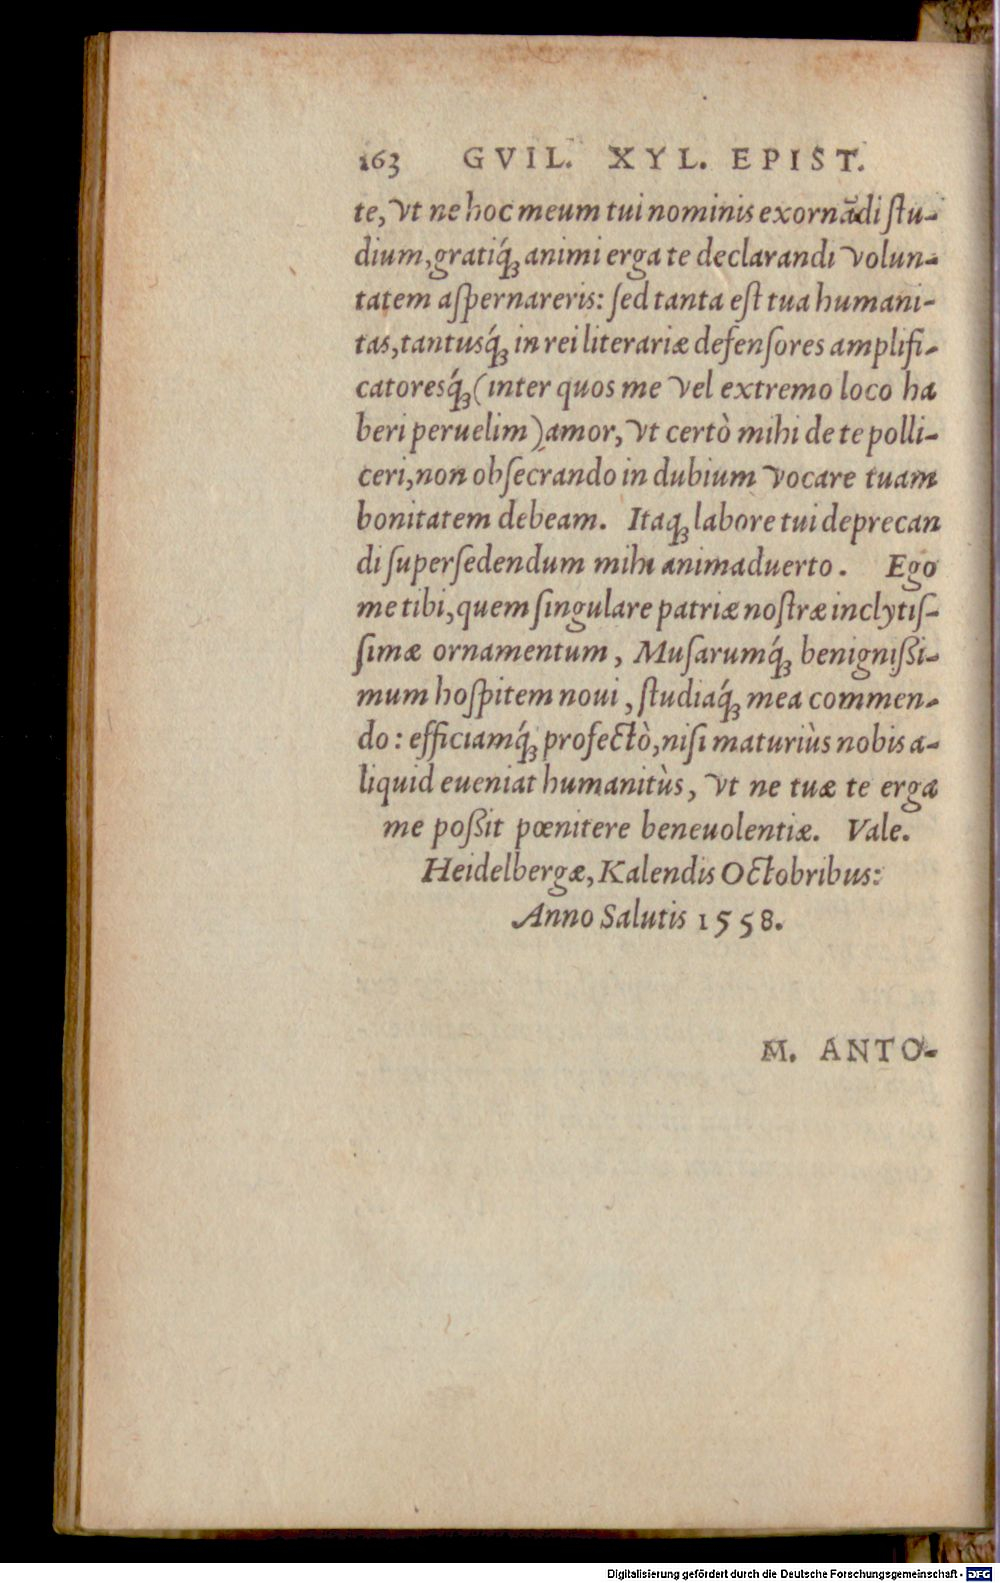 163 GVIL. XYL. EPIST.
te, vt ne hoc meum tui nominis exornãdi ſtu-
dium, gratiq́ꝫ animi erga te declarandi volun-
tatem aſpernareris: ſed tanta eſt tua humani-
tas, tantusq́ꝫ in rei literariæ defenſores amplifi-
catoresq́ꝫ (inter quos me vel extremo loco ha
beri peruelim) amor, vt certò mihi de te polli-
ceri, non obſecrando in dubium vocare tuam
bonitatem debeam. Itaqꝫ labore tui deprecan
di ſuperſedendum mihi animaduerto. Ego
me tibi, quem ſingulare patriæ noſtræ inclytiſ-
ſimæ ornamentum, Muſarumq́ꝫ benigniſſi-
mum hoſpitem noui, ſtudiaq́ꝫ mea commen-
do: efficiamq́ꝫ profectò, niſi maturiùs nobis a-
liquid eueniat humanitùs, vt ne tuæ te erga
me poſſit pœnitere beneuolentiæ. Vale.
Heidelbergæ, Kalendis Octobribus:
Anno Salutis 1558.
M. ANTO-
Digitalisierung gefördert durch die Deutsche Forschungsgemeinschaft - DFG